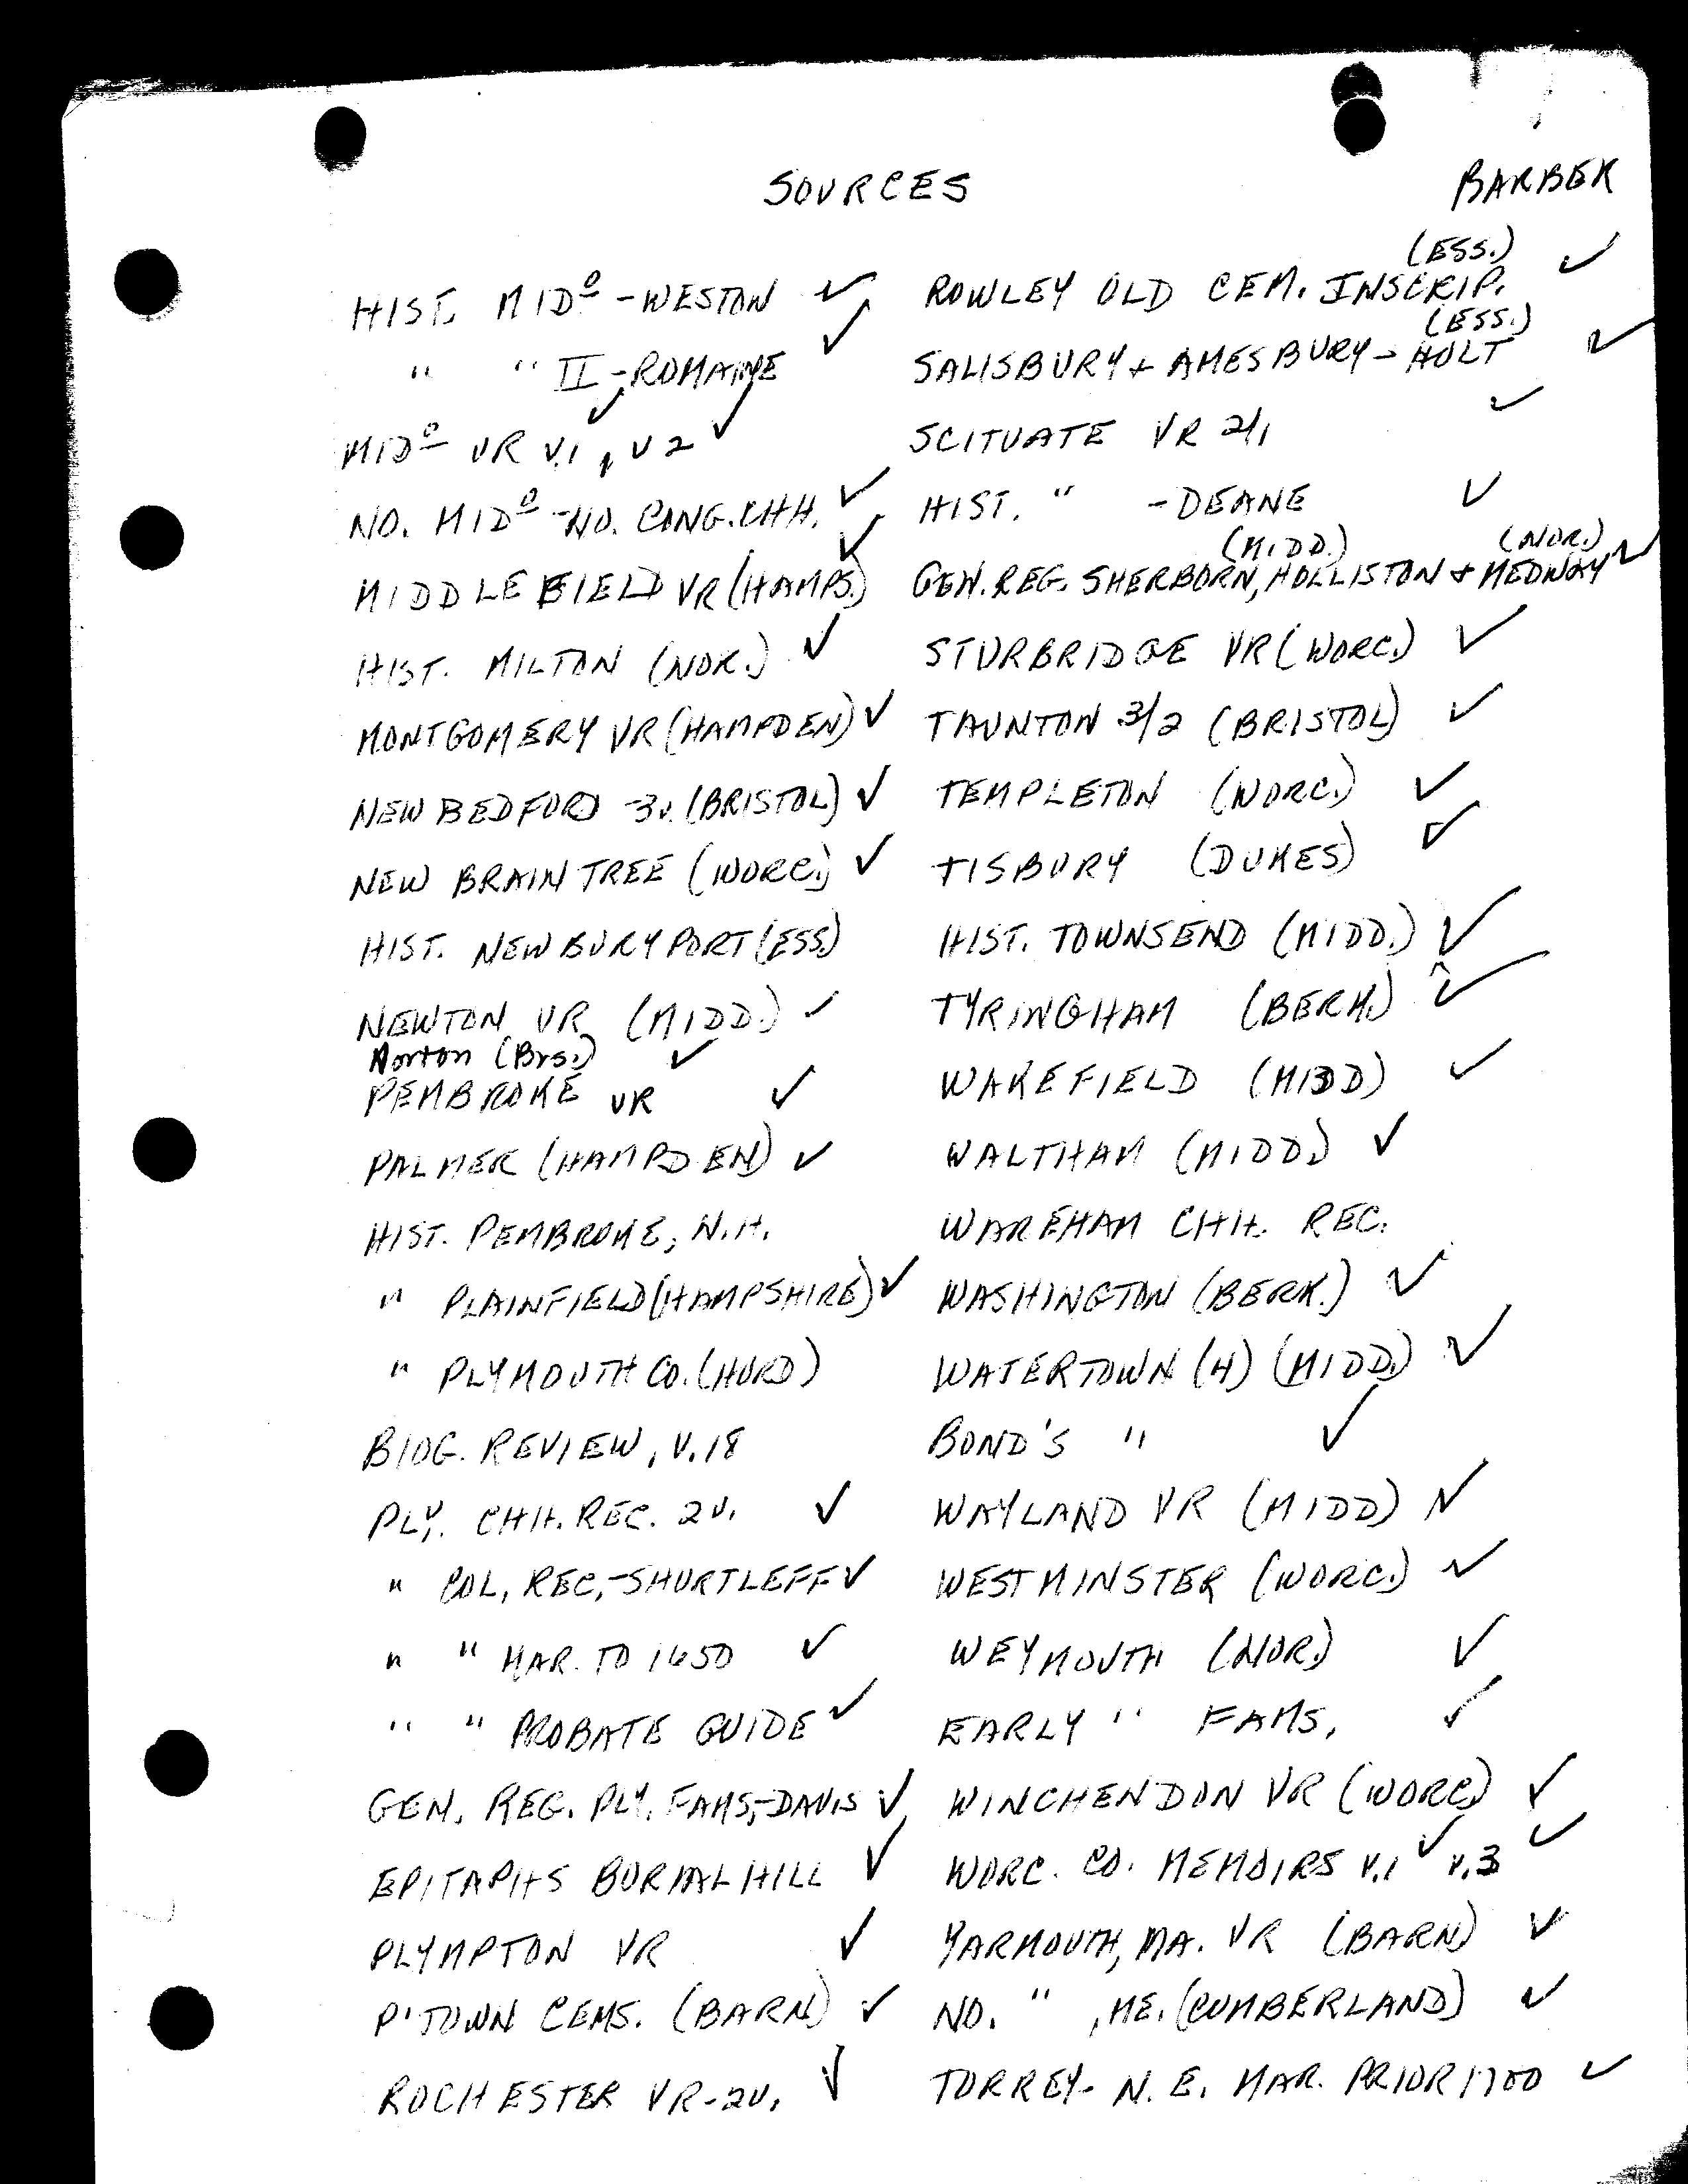 SOURCES
BARBER
HIST. MIDº - WESTON ✓
" " II - ROMAINE ✓
MIDº VR V.1 ✓, V 2 ✓
NO. MIDº - NO. CONG. CHH. ✓
MIDDLEFIELD VR (HAMPS.) ✓
HIST. MILTON (NOR.) ✓
MONTGOMERY VR (HAMPDEN) ✓
NEW BEDFORD - 3v. (BRISTOL) ✓
NEW BRAINTREE (WORC.) ✓
HIST. NEWBURYPORT (ESS.)
NEWTON VR (MIDD.) ✓
Norton (Brs.) ✓
PEMBROKE VR ✓
PALMER (HAMPDEN) ✓
HIST. PEMBROKE, N.H.
" PLAINFIELD (HAMPSHIRE) ✓
" PLYMOUTH CO. (HURD)
BIOG. REVIEW, V.18
PLY. CHH. REC. 2V. ✓
" COL. REC. - SHURTLEFF ✓
" " MAR. TO 1650 ✓
" " PROBATE GUIDE ✓
GEN. REG. PLY. FAMS. - DAVIS ✓
EPITAPHS BURIAL HILL ✓
PLYMPTON VR ✓
P'TOWN CEMS. (BARN) ✓
ROCHESTER VR - 2V. ✓
(ESS.)
ROWLEY OLD CEM. INSCRIP. ✓
(ESS.)
SALISBURY + AMESBURY - HOLT ✓
SCITUATE VR 2/1 ✓
HIST. " - DEANE ✓
(MIDD.) (NOR.)
GEN. REG. SHERBORN, HOLLISTON + MEDWAY ✓
STURBRIDGE VR (WORC.) ✓
TAUNTON 3/2 (BRISTOL) ✓
TEMPLETON (WORC.) ✓
TISBURY (DUKES) ✓
HIST. TOWNSEND (MIDD.) ✓
TYRINGHAM (BERK.) ✓
WAKEFIELD (MIDD) ✓
WALTHAM (MIDD.) ✓
WAREHAM CHH. REC.
WASHINGTON (BERK.) ✓
WATERTOWN (4) (MIDD.) ✓
BOND'S " ✓
WAYLAND VR (MIDD) ✓
WESTMINSTER (WORC.) ✓
WEYMOUTH (NOR.) ✓
EARLY " FAMS. ✓
WINCHENDON VR (WORC) ✓
WORC. CO. MEMOIRS V.1 ✓ V.3 ✓
YARMOUTH, MA. VR (BARN) ✓
NO. " , ME. (CUMBERLAND) ✓
TORREY - N.E. MAR. PRIOR 1700 ✓